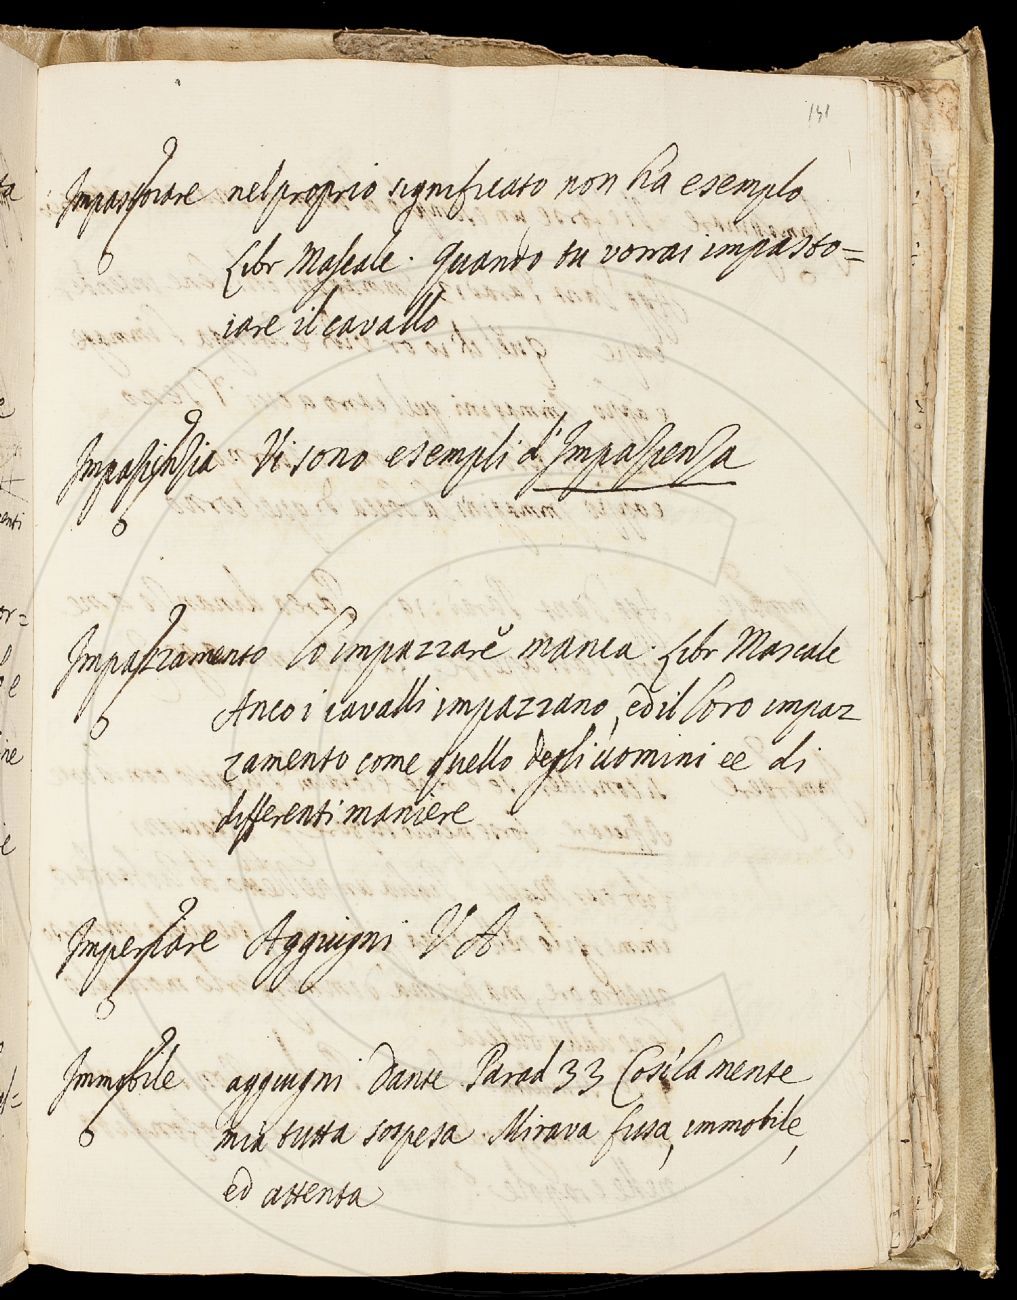 131
Impastoiare nel proprio significato non ha esemplo
Libr Mascalc. Quando tu vorrai impasto=
iare il cavallo
Impazienzia Vi sono esempli d'Impazienza
Impazzamento Lo impazzare manca. Libr Mascalc
Anco i cavalli impazzano, ed il loro impaz
zamento come quello degli uomini ee di
differenti maniere
Aggiugni V A
Immobile aggiugni Dante Parad 33 Così la mente
mia tutta sospesa Mirava fissa, immobile,
ed attenta